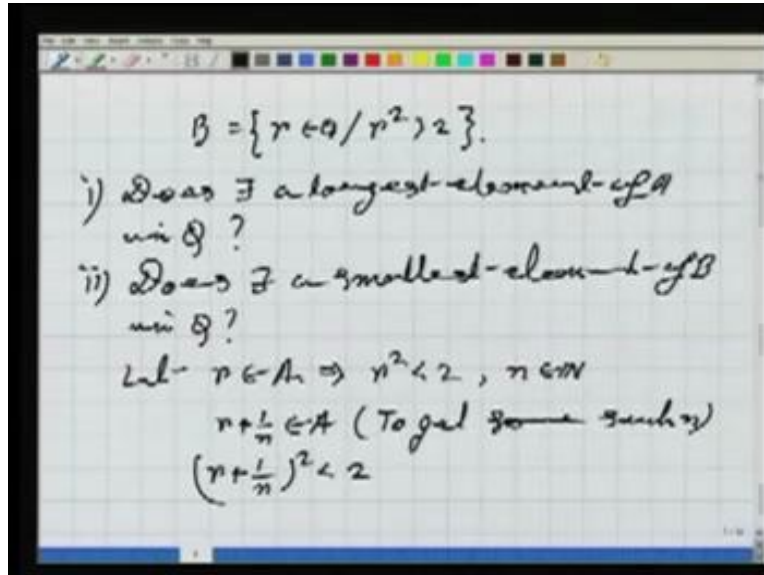 B = { r ∈ Q / r² > 2 }.
i) Does ∃ a largest element of A
in Q ?
ii) Does ∃ a smallest element of B
in Q ?
Let r ∈ A ⇒ r² < 2 , n ∈ N
r + 1/n ∈ A ( To get such n)
(r + 1/n)² < 2